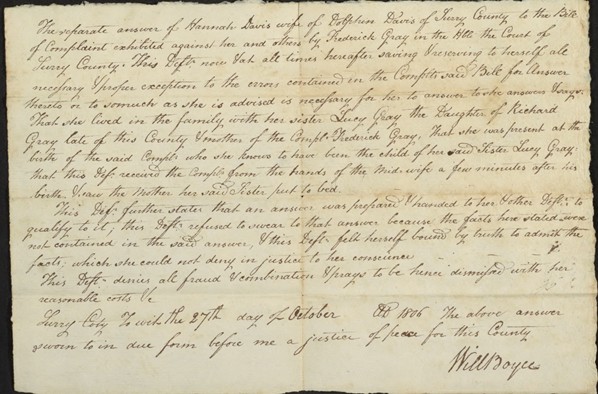 The separate answer of Hannah Davis wife of Dolphin Davis of Surry County to the Bill
of Complaint exhibited against her and others by Frederick Gray in the the Court of
Surry County. This Deft. now & at all times hereafter saving & reserving to herself all
necessary & proper exception to the errors contained in the Complts said Bill for Answer
thereto or to somuch as she is advised is necessary for her to answer to she answers & says.
That she lived in the family with her sister Lucy Gray the Daughter of Richard
Gray late of this County & mother of the Compt. Frederick Gray, That she was present at the
birth of the said Compt. who she knows to have been the child of her said Sister Lucy Gray:
that this Deft. received the Compt. from the hands of the Mid-wife a few minutes after his
birth & saw the Mother her said Sister put to bed.
This Deft. further states that an answer was prepared & handed to her & other Defts. to
qualify to it; this Deft. refused to swear to that answer because the facts here stated were
not contained in the said answer, & this Deft. felt herself bound by truth to admit the
facts; which she could not deny in justice to her conscience
This Deft. denies all fraud & combination & prays to be hence dismissed with her
reasonable costs &c
Surry Coty To wit. the 27th day of October 1806 The above answer
sworn to in due form before me a justice of peace for this County
Will Boyce